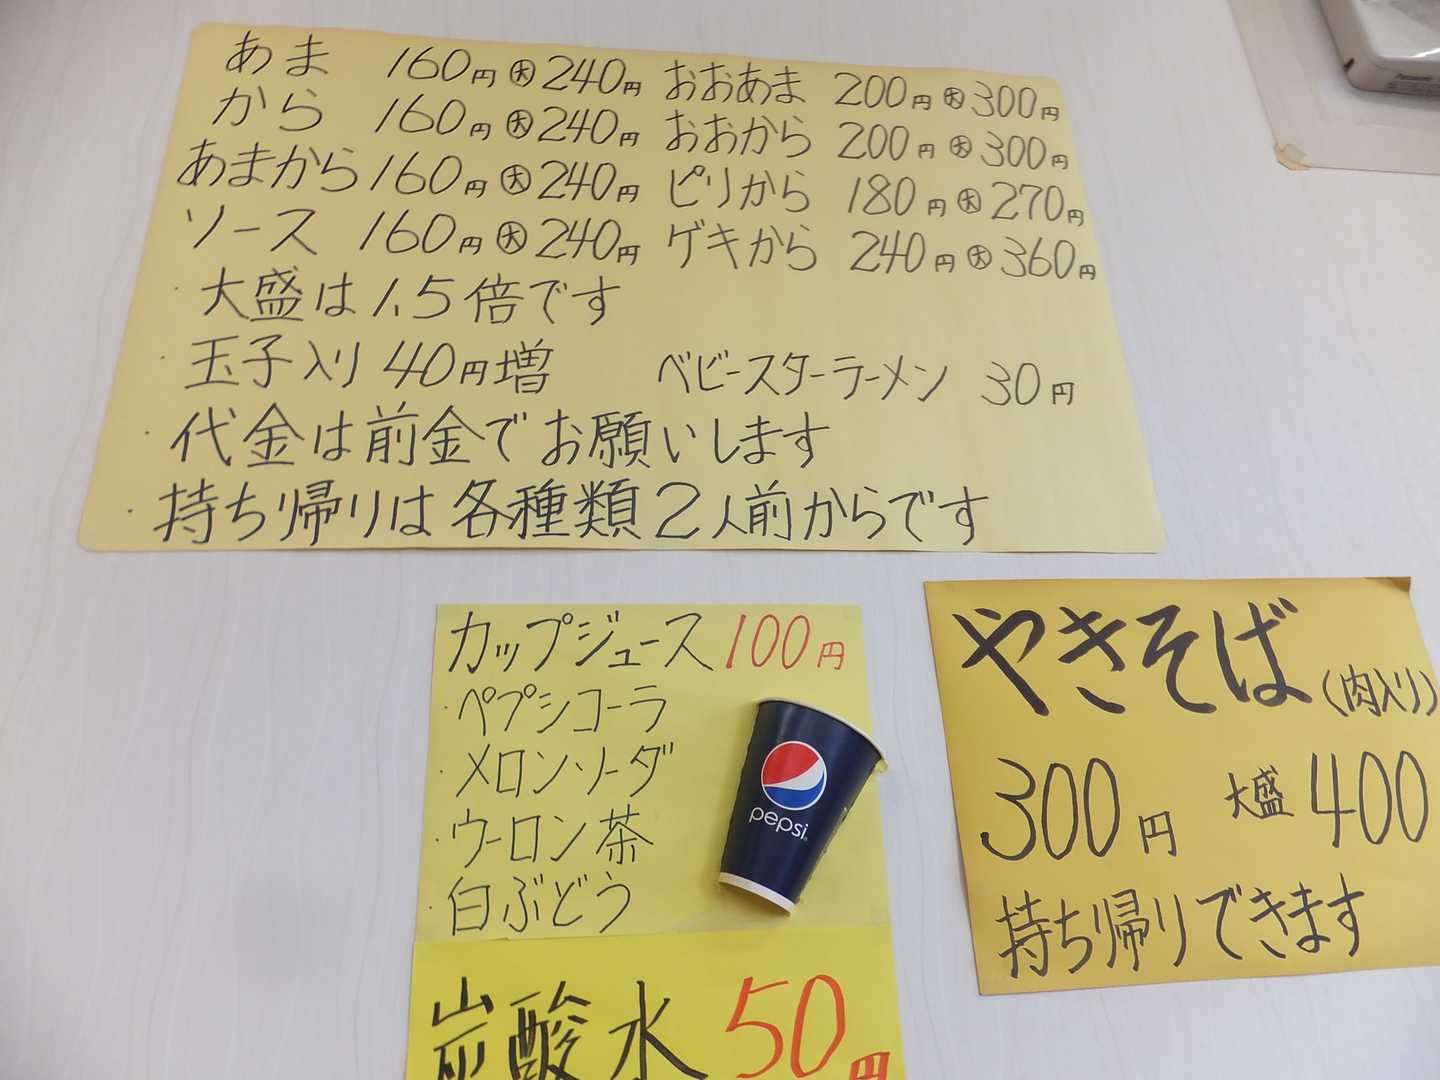 あま 160円 大 240円 おおあま 200円 大 300円
から 160円 大 240円 おおから 200円 大 300円
あまから 160円 大 240円 ピリから 180円 大 270円
ソース 160円 大 240円 ゲキから 240円 大 360円
・大盛は1.5倍です
・玉子入り 40円増 ベビースターラーメン 30円
・代金は前金でお願いします
・持ち帰りは各種類2人前からです
カップジュース 100円
・ペプシコーラ
・メロンソーダ
・ウーロン茶
・白ぶどう
pepsi
炭酸水 50円
やきそば(肉入り)
300円 大盛 400
持ち帰りできます
Panasonic